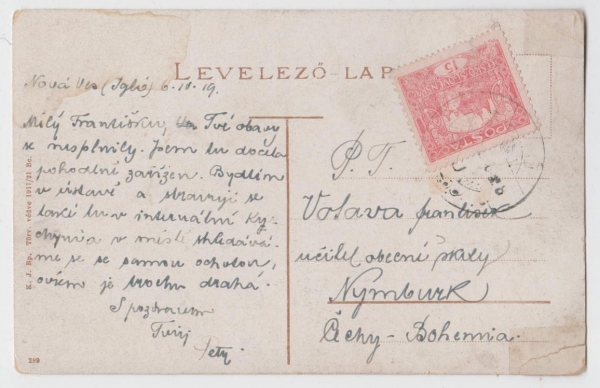 LEVELEZŐ-LAP
Nová Ves (Igló) 6-10-19.
Milý Františku, Tvé obavy
se nesplnily. Jsem tu docela
pohodlně zařízen. Bydlím
v ústavě a stravuji se
také tu v internátní ku-
chyni a v městě shledává-
me se se samou ochotou,
ovšem je trochu drahá.
S pozdravem
Tvůj
P. T.
Votava František
učitel obecné školy
Nymburk
Čechy - Bohemia.
15
POŠTA
K. J. Bp. Törv. védve 1917/21 Be.
289